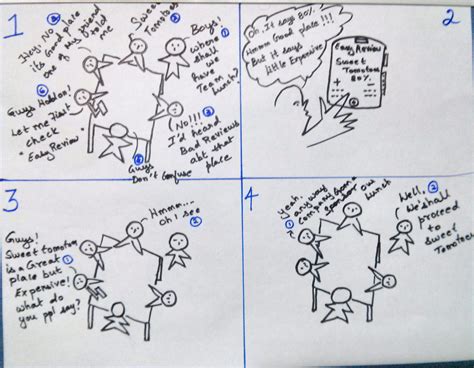 1
Boys! ①
where
shall
we
have
Team
Lunch?
②
Sweet
Tomatoes
③
No!!!
I'd heard
Bad Reviews
abt that
place
Hey, No
its Good place
one of my friend
told
me
⑤
Guys
Don't Confuse
⑥
Guys Holdon!
Let me First
check
"EasyReview"
2
Oh, It says 80%
Hmmm Good place!!!
But it says
little Expensive!
EasyReview
Sweet
Tomatoes
80%
3
Guys!
Sweet tomatoes
is a Great ①
place but
Expensive!
what do
you ppl say?
Hmmm...
oh I see
②
4
yeah,
anyway
company Gonna
Sponsor our
Lunch
①
Well, ②
We shall
proceed
to
Sweet
Tomatoes